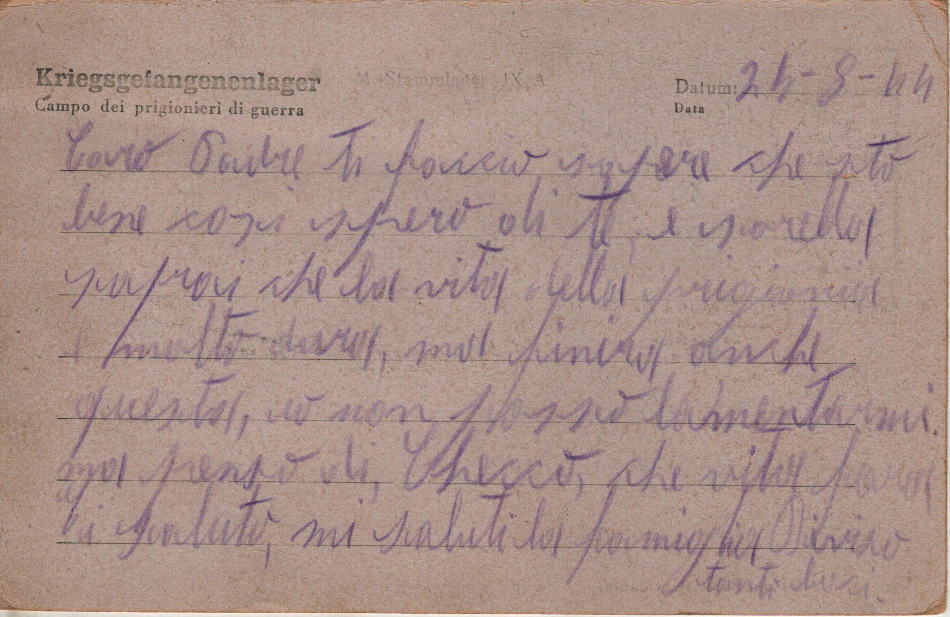 Kriegsgefangenenlager M.-Stammlager IX A
Campo dei prigionieri di guerra
Datum: 24-9-44
Data
Caro Padre ti faccio sapere che sto
bene cosi spero di te, e sorella
saprai che la vita della prigionia
è molto dura, ma finira anche
questa, io non posso lamentarmi.
ma penso di, Checco, che vita fara
vi saluto, mi saluti la famiglia
tanti baci.